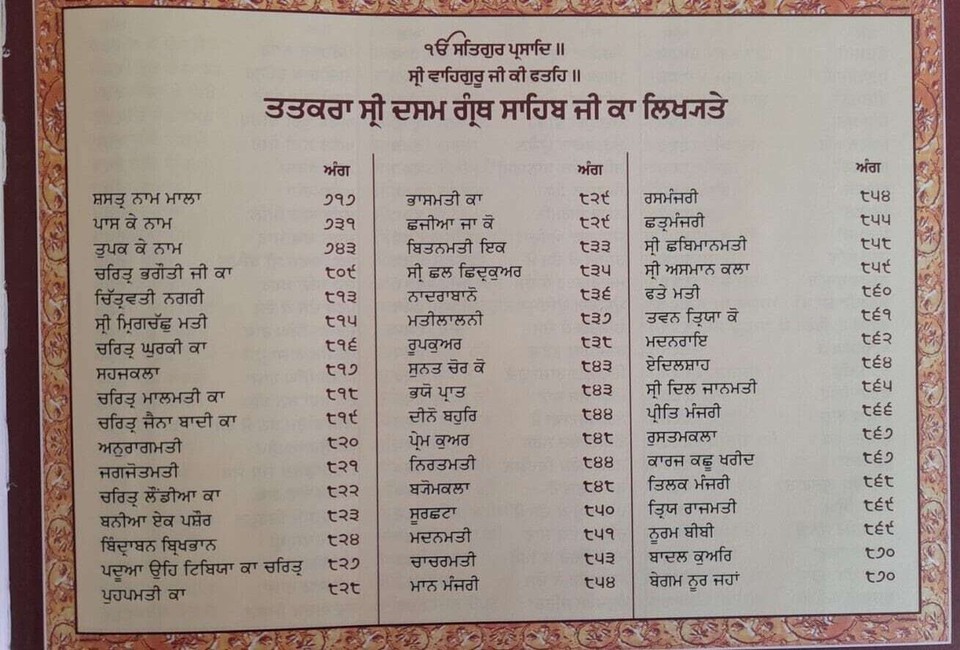 ੴ ਸਤਿਗੁਰ ਪ੍ਰਸਾਦਿ ॥
ਸ੍ਰੀ ਵਾਹਿਗੁਰੂ ਜੀ ਕੀ ਫਤਹਿ ॥
ਤਤਕਰਾ ਸ੍ਰੀ ਦਸਮ ਗ੍ਰੰਥ ਸਾਹਿਬ ਜੀ ਕਾ ਲਿਖ੍ਯਤੇ
ਅੰਗ
ਸ਼ਸਤ੍ਰ ਨਾਮ ਮਾਲਾ ੭੧੭
ਪਾਸ ਕੇ ਨਾਮ ੭੩੧
ਤੁਪਕ ਕੇ ਨਾਮ ੭੪੩
ਚਰਿਤ੍ਰ ਭਗੌਤੀ ਜੀ ਕਾ ੮੦੯
ਚਿੱਤ੍ਰਵਤੀ ਨਗਰੀ ੮੧੩
ਸ੍ਰੀ ਮ੍ਰਿਗਚੱਛੁ ਮਤੀ ੮੧੫
ਚਰਿਤ੍ਰ ਘੁਰਕੀ ਕਾ ੮੧੬
ਸਹਜਕਲਾ ੮੧੭
ਚਰਿਤ੍ਰ ਮਾਲਮਤੀ ਕਾ ੮੧੮
ਚਰਿਤ੍ਰ ਜੈਨਾ ਬਾਦੀ ਕਾ ੮੧੯
ਅਨੁਰਾਗਮਤੀ ੮੨੦
ਜਗਜੋਤਮਤੀ ੮੨੧
ਚਰਿਤ੍ਰ ਲੌਂਡੀਆ ਕਾ ੮੨੨
ਬਨੀਆ ਏਕ ਪਸ਼ੌਰ ੮੨੩
ਬਿੰਦ੍ਰਾਬਨ ਬ੍ਰਿਖਭਾਨ ੮੨੪
ਪਦੂਆ ਉਹਿ ਟਿਬਿਯਾ ਕਾ ਚਰਿਤ੍ਰ ੮੨੭
ਪੁਹਪਮਤੀ ਕਾ ੮੨੮
ਅੰਗ
ਭਾਸਮਤੀ ਕਾ ੮੨੯
ਛਜੀਆ ਜਾ ਕੋ ੮੨੯
ਬਿਤਨਮਤੀ ਇਕ ੮੩੩
ਸ੍ਰੀ ਛਲ ਛਿਦ੍ਰਕੁਅਰ ੮੩੫
ਨਾਦਰਾਬਾਨੋ ੮੩੬
ਮਤੀਲਾਲਨੀ ੮੩੭
ਰੂਪਕੁਅਰ ੮੩੮
ਸੁਨਤ ਚੋਰ ਕੋ ੮੪੩
ਭਯੋ ਪ੍ਰਾਤ ੮੪੩
ਦੀਨੋ ਬਹੁਰਿ ੮੪੪
ਪ੍ਰੇਮ ਕੁਅਰ ੮੪੮
ਨਿਰਤਮਤੀ ੮੪੪
ਬ੍ਯੋਮਕਲਾ ੮੪੮
ਸੂਰਛਟਾ ੮੫੦
ਮਦਨਮਤੀ ੮੫੧
ਚਾਚਰਮਤੀ ੮੫੩
ਮਾਨ ਮੰਜਰੀ ੮੫੪
ਅੰਗ
ਰਸਮੰਜਰੀ ੮੫੪
ਛਤ੍ਰਮੰਜਰੀ ੮੫੫
ਸ੍ਰੀ ਛਬਿਮਾਨਮਤੀ ੮੫੮
ਸ੍ਰੀ ਅਸਮਾਨ ਕਲਾ ੮੫੯
ਫਤੇ ਮਤੀ ੮੬੦
ਤਵਨ ਤ੍ਰਿਯਾ ਕੋ ੮੬੧
ਮਦਨਰਾਇ ੮੬੨
ਏਦਿਲਸ਼ਾਹ ੮੬੪
ਸ੍ਰੀ ਦਿਲ ਜਾਨਮਤੀ ੮੬੫
ਪ੍ਰੀਤਿ ਮੰਜਰੀ ੮੬੬
ਰੁਸਤਮਕਲਾ ੮੬੭
ਕਾਰਜ ਕਛੂ ਖਰੀਦ ੮੬੭
ਤਿਲਕ ਮੰਜਰੀ ੮੬੮
ਤ੍ਰਿਯ ਰਾਜਮਤੀ ੮੬੯
ਨੂਰਮ ਬੀਬੀ ੮੬੯
ਬਾਦਲ ਕੁਅਰਿ ੮੭੦
ਬੇਗਮ ਨੂਰ ਜਹਾਂ ੮੭੦